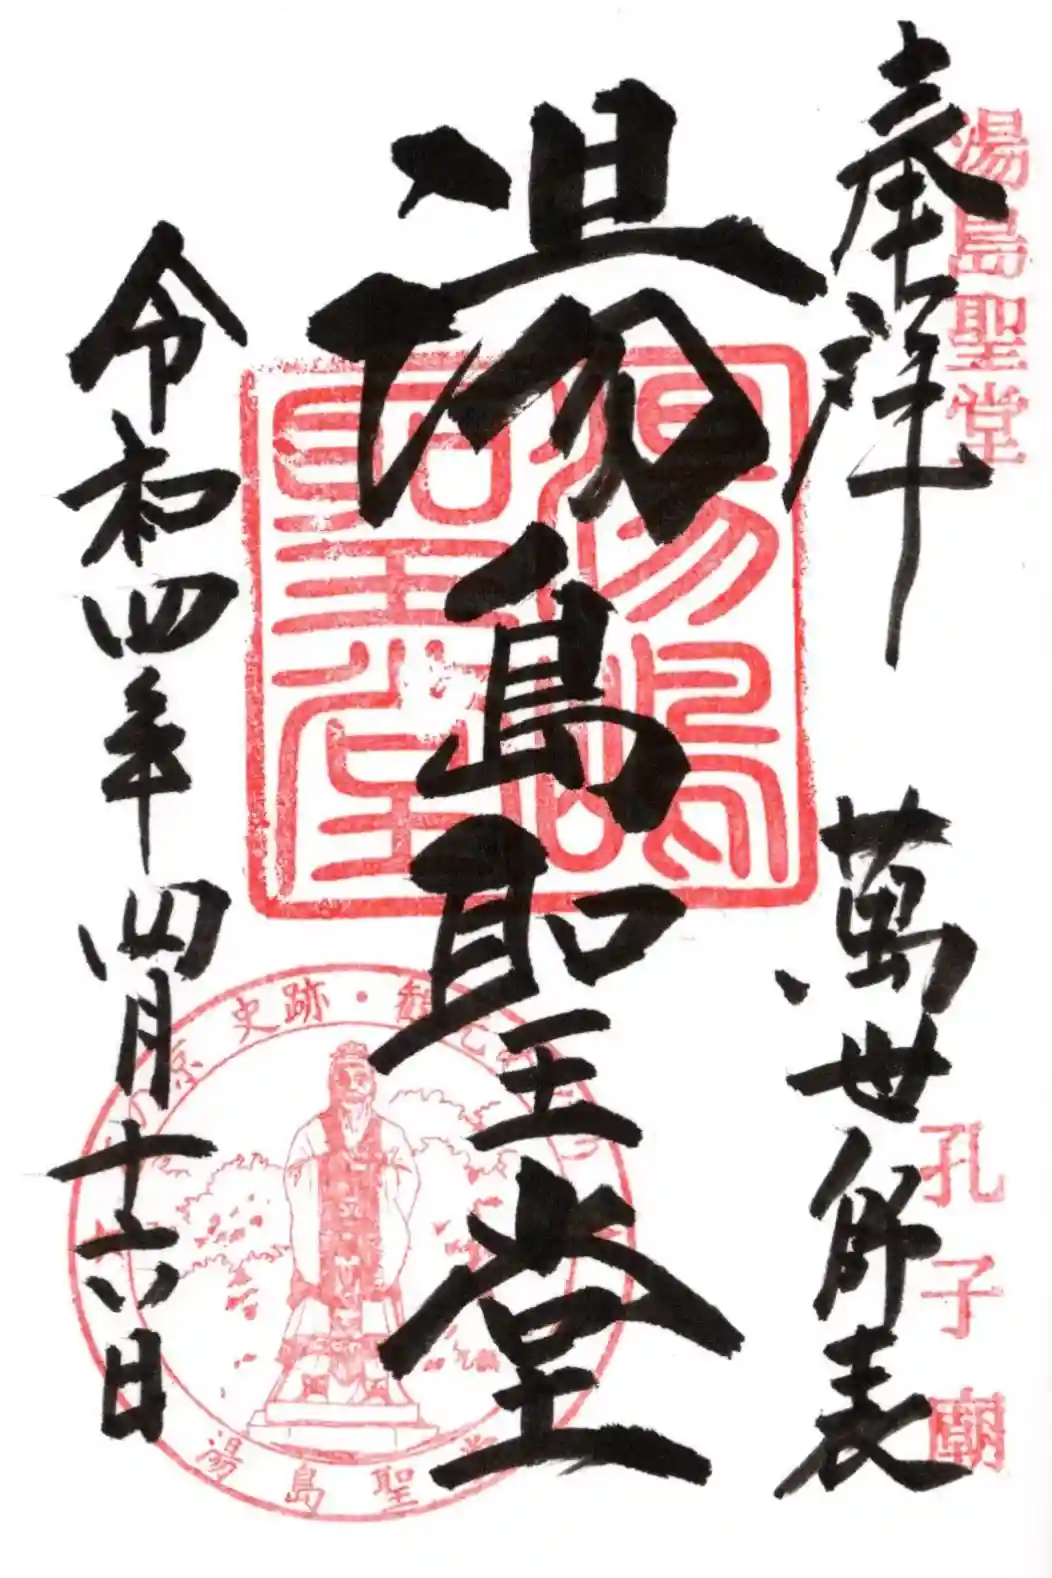 奉拝
湯島聖堂
萬世師表
孔子廟
湯島聖堂
湯島聖堂
令和四年四月十六日
史跡・
湯島聖堂